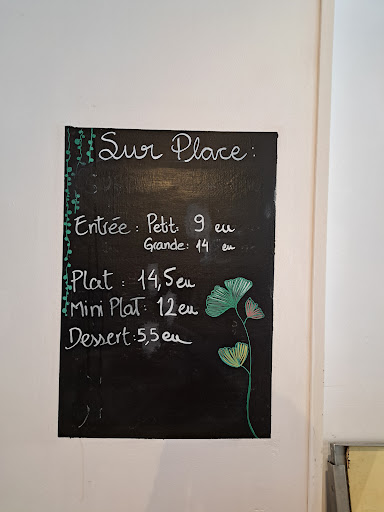 Sur Place :
Entrée : Petit: 9 eu
Grande: 14 eu
Plat : 14,5 eu
Mini Plat: 12 eu
Dessert: 5,5 eu